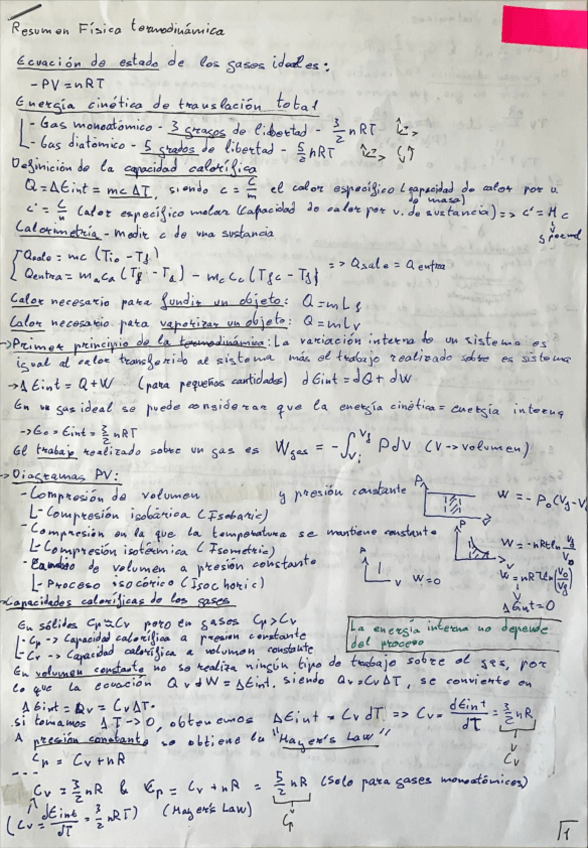 Resumen Física termodinámica
Ecuación de estado de los gases ideales:
- PV = nRT
Energía cinética de translación total
- Gas monoatómico - 3 grados de libertad - 3/2 nRT
- Gas diatómico - 5 grados de libertad - 5/2 nRT
Definición de la capacidad calorífica
Q = ΔEint = mcΔT, siendo c = C/m el calor específico (capacidad de calor por u. de masa)
c' = C/n (calor específico molar (capacidad de calor por u. de sustancia) => c' = M c
Calorimetría - medir c de una sustancia
Qsale = mc (Tio - Tf)
Qentra = => Qsale = Qentra
Calor necesario para fundir un objeto: Q = mLf
Calor necesario para vaporizar un objeto: Q = mLv
-> Primer principio de la termodinámica: La variación interna de un sistema es
igual al calor transferido al sistema más el trabajo realizado sobre es sistema
-> ΔEint = Q + W (para pequeñas cantidades) dEint = dQ + dW
En un gas ideal se puede considerar que la energía cinética = energía interna
Eint = 3/2 nRT
El trabajo realizado sobre un gas es Wgas = -∫ PdV (V -> volumen)
-> Diagramas PV:
- Compresión de volumen y presión constante
Compresión isobárica (Isobaric)
W = - Po (Vf - V
- Compresión en la que la temperatura se mantiene constante
Compresión isotérmica (Isometric)
W = -nRt ln Vf/Vo
W = nRT ln (Vo/Vf)
ΔEint = 0
- de volumen a presión constante
Proceso isocórico (Isochoric)
W = 0
Capacidades caloríficas de los gases
En sólidos Cp ≈ Cv pero en gases Cp > Cv
Cp -> Capacidad calorífica a presion constante
Cv -> Capacidad calorífica a volumen constante
La energía interna no depende
del proceso
En volumen constante no se realiza ningún tipo de trabajo sobre el gas, por
lo que la ecuación ΔEint. siendo Qv = CvΔT, se convierte en
ΔEint = Qv = CvΔT.
si tomamos ΔT -> 0, obtenemos ΔEint = Cv dT => Cv = dEint/dT = 3/2 nR
Cv
A presión constante se obtiene la "Mayer's Law"
Cp = Cv + nR
Cv = 3/2 nR & Cp = Cv + nR = 5/2 nR (solo para gases monoatómicos)
(Cv = dEint/dT = 3/2 nRT) (Mayer's Law)
Cp
1